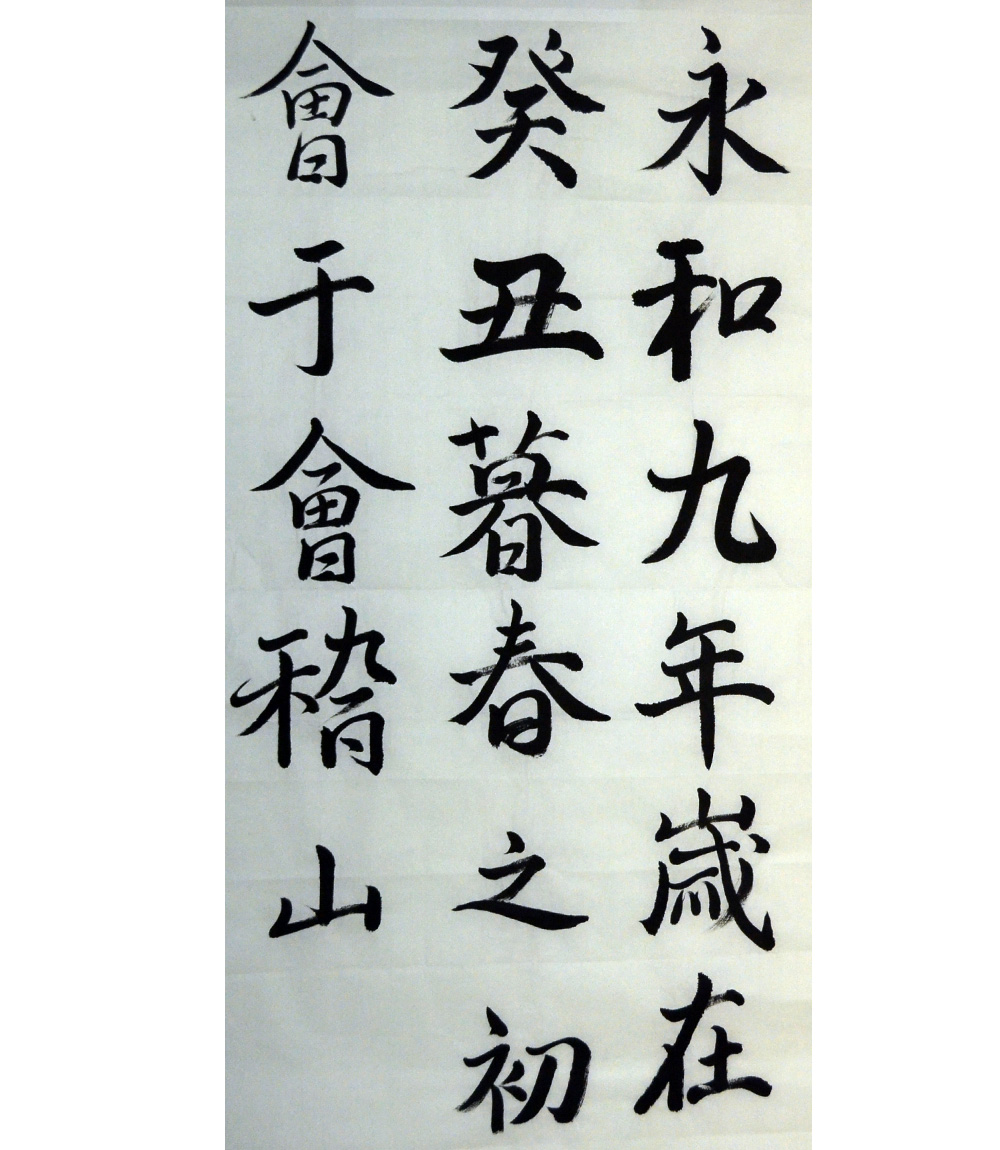 永和九年歲在
癸丑暮春之初
會于會稽山